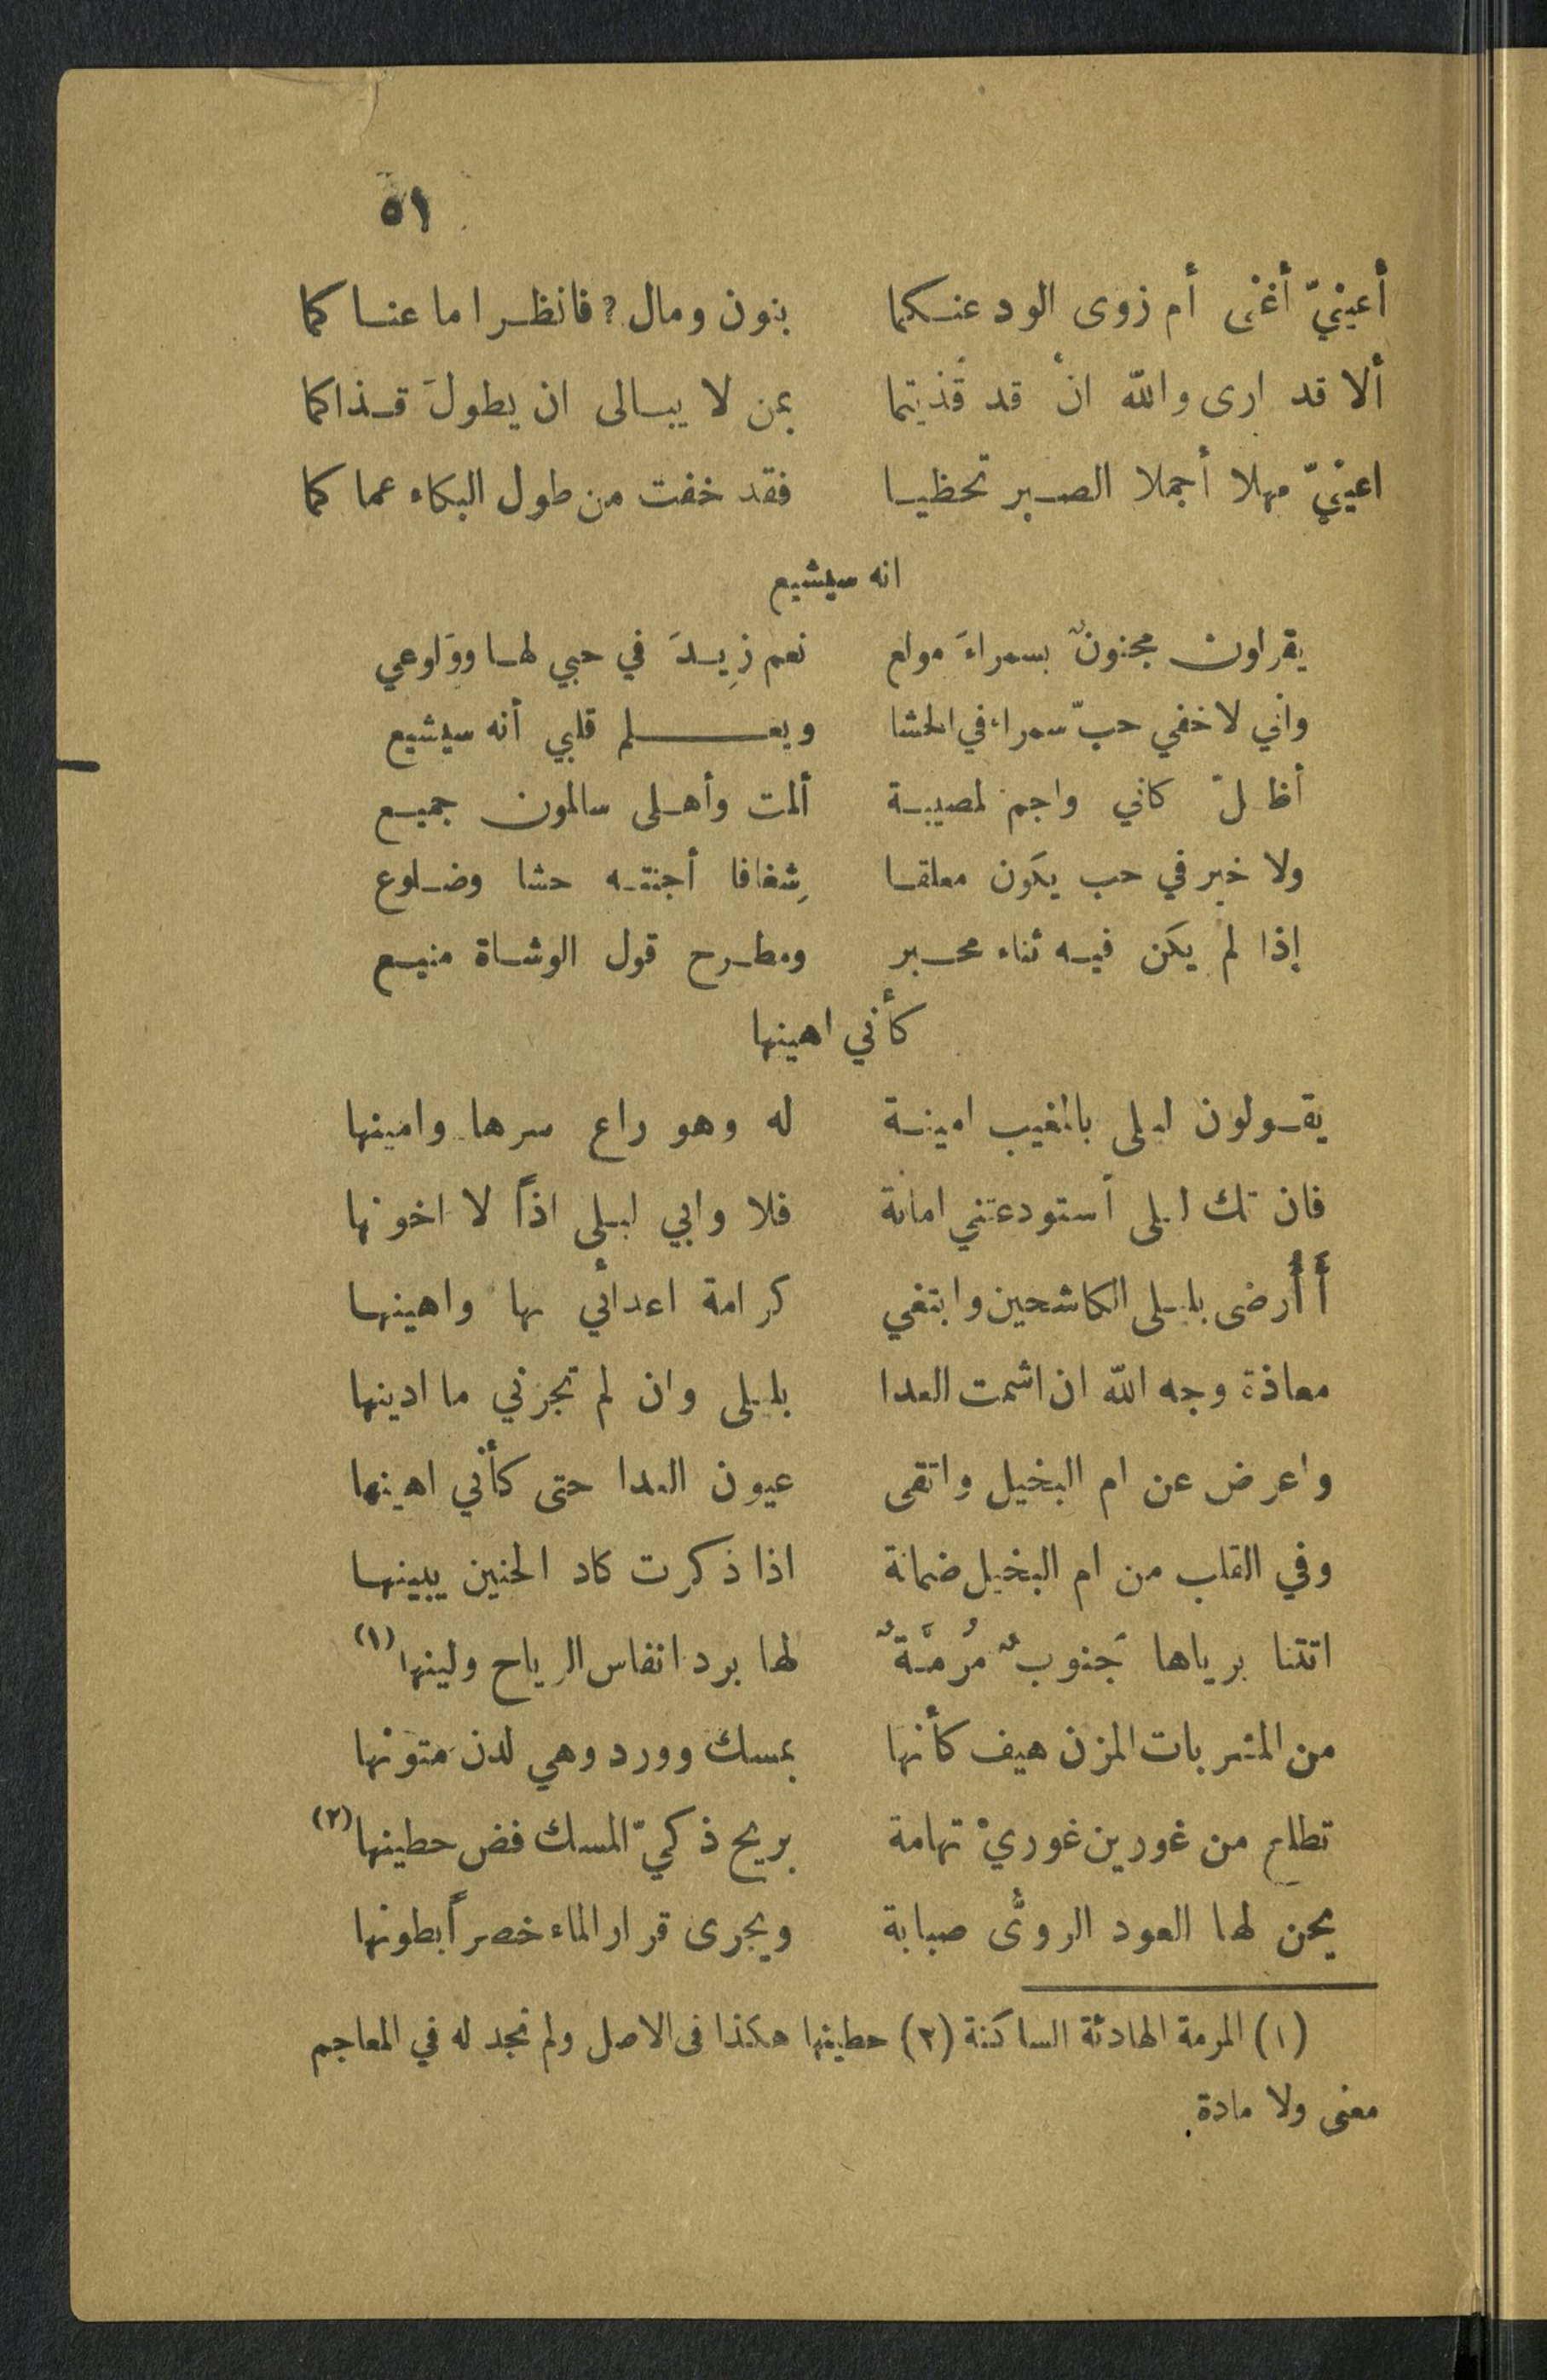 ٥١
أعينيّ أغنى أم زوى الود عنكما بنون ومال؟ فانظرا ما عناكما
ألا قد ارى والله ان قد قذيتما بمن لا يبالى ان يطولَ قذاكما
اعينيّ مهلا أجملا الصبر تحظيا فقد خفت من طول البكاء عماكما
انه سيشيع
يقولون مجنونٌ بسمراءَ مولع نعم زِيدَ في حبي لها وولوعي
واني لاخفي حبّ سمراء في الحشا ويعلم قلبي أنه سيشيع
أظلّ كاني واجم لمصيبة ألمت وأهلى سالمون جميع
ولا خير في حب يكون معلقا شِغافا أجنته حشا وضلوع
إذا لم يكن فيه ثناء محبر ومطرح قول الوشاة منيع
كأني اهينها
يقولون ليلى بالمغيب امينة له وهو راع سرها وامينها
فان تك ليلى أستودعتني امانة فلا وابي ليلى اذاً لا اخونها
أأرضى بليلى الكاشحين وابتغي كرامة اعدائي بها واهينها
معاذة وجه الله ان اشمت العدا بليلى وان لم تجزني ما ادينها
واعرض عن ام البخيل واتقى عيون العدا حتى كأني اهينها
وفي القلب من ام البخيل ضمانة اذا ذكرت كاد الحنين يبينها
اتتنا برياها جَنوبٌ مُرِمَّةٌ لها برد انفاس الرياح ولينها (١)
من المشربات المزن هيف كأنها بمسك وورد وهي لدن متونها
تطلع من غورين غوريْ تهامة بريح ذكيّ المسك فض حطينها (٢)
يحن لها العود الروىُّ صبابة ويجرى قرار الماء خصراً بطونها
(١) المرمة الهادئة الساكنة (٢) حطينها هكذا فى الاصل ولم نجد له في المعاجم
معنى ولا مادة.